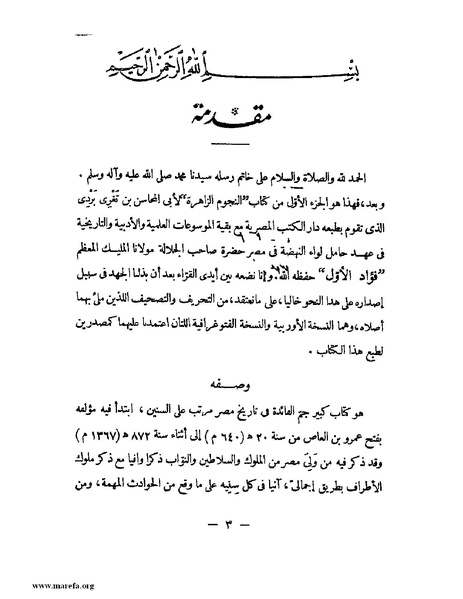 بسم الله الرحمن الرحيم
مقدمة
الحمد لله والصلاة والسلام على خاتم رسله سيدنا محمد صلى الله عليه وآله وسلم .
وبعد، فهذا هو الجزء الأول من كتاب "النجوم الزاهرة" لأبى المحاسن بن تَغْرِى بَرْدِى
الذى تقوم بطبعه دار الكتب المصرية مع بقية الموسوعات العلمية والأدبية والتاريخية
فى عهد حامل لواء النهضة فى مصر حضرة صاحب الجلالة مولانا المليك المعظم
"فؤاد الأول" حفظه الله. وإنا نضعه بين أيدى القراء بعد أن بذلنا الجهد فى سبيل
إصداره على هذا النحو خاليا، على ما نعتقد، من التحريف والتصحيف اللذين ملئ بهما
أصلاه، وهما النسخة الأوربية والنسخة الفتوغرافية اللتان اعتمدنا عليهما كمصدرين
لطبع هذا الكتاب .
وصفه
هو كتاب كبير جمّ الفائدة فى تاريخ مصر مرتب على السنين ، ابتدأ فيه مؤلفه
بفتح عمرو بن العاص من سنة ٢٠ ه (٦٤٠ م) إلى أثناء سنة ٨٧٢ ه (١٣٦٧ م)
وقد ذكر فيه من وَلِىَ مصر من الملوك والسلاطين والنوّاب ذكرا وافيا مع ذكر ملوك
الأطراف بطريق إجمالىّ، آتيا فى كل سِنِيه على ما وقع من الحوادث المهمة، ومن
— ٣ —
www.marefa.org